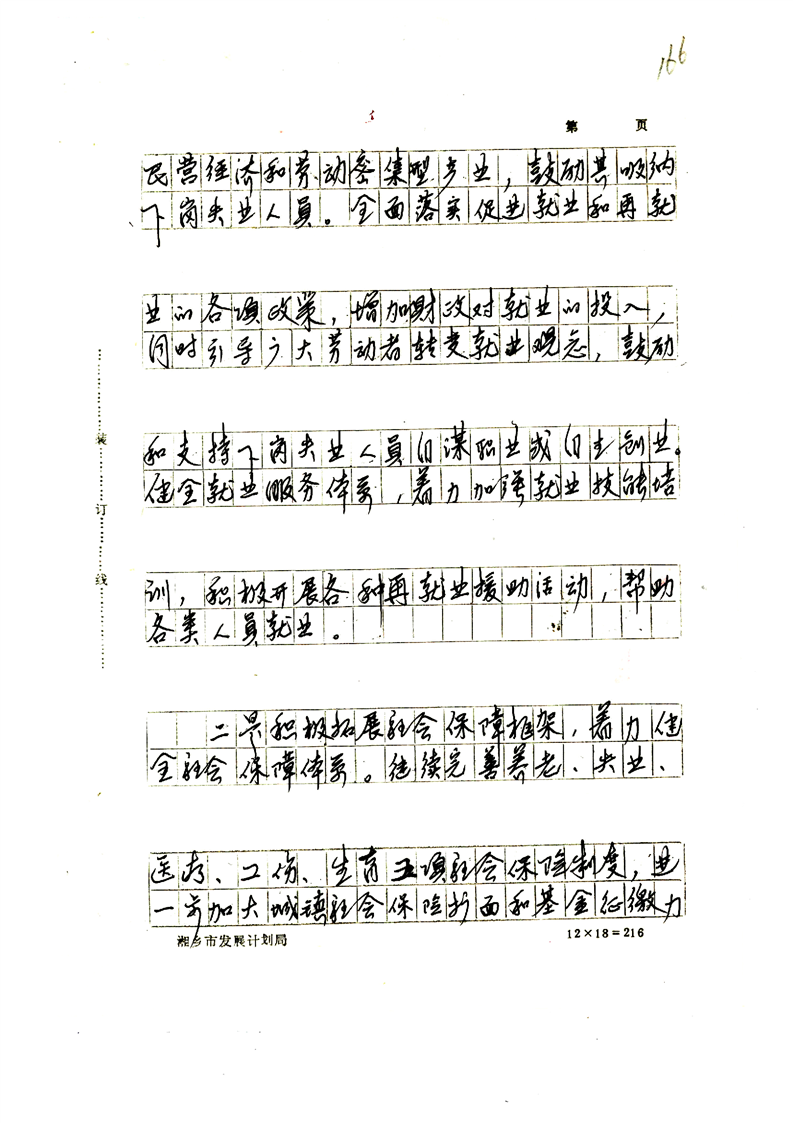 166
第 页
民营经济和劳动密集型产业，鼓励其吸纳
下岗失业人员。全面落实促进就业和再就
业的各项政策，增加财政对就业的投入，
同时引导广大劳动者转变就业观念，鼓励
和支持下岗失业人员自谋职业或自主创业。
健全就业服务体系，着力加强就业技能培
训，积极开展各种再就业援助活动，帮助
各类人员就业。
二是积极拓展社会保障框架，着力健
全社会保障体系。继续完善养老、失业、
医疗、工伤、生育五项社会保险制度，进
一步加大城镇社会保险扩面和基金征缴力
湘乡市发展计划局 12×18=216
装订线